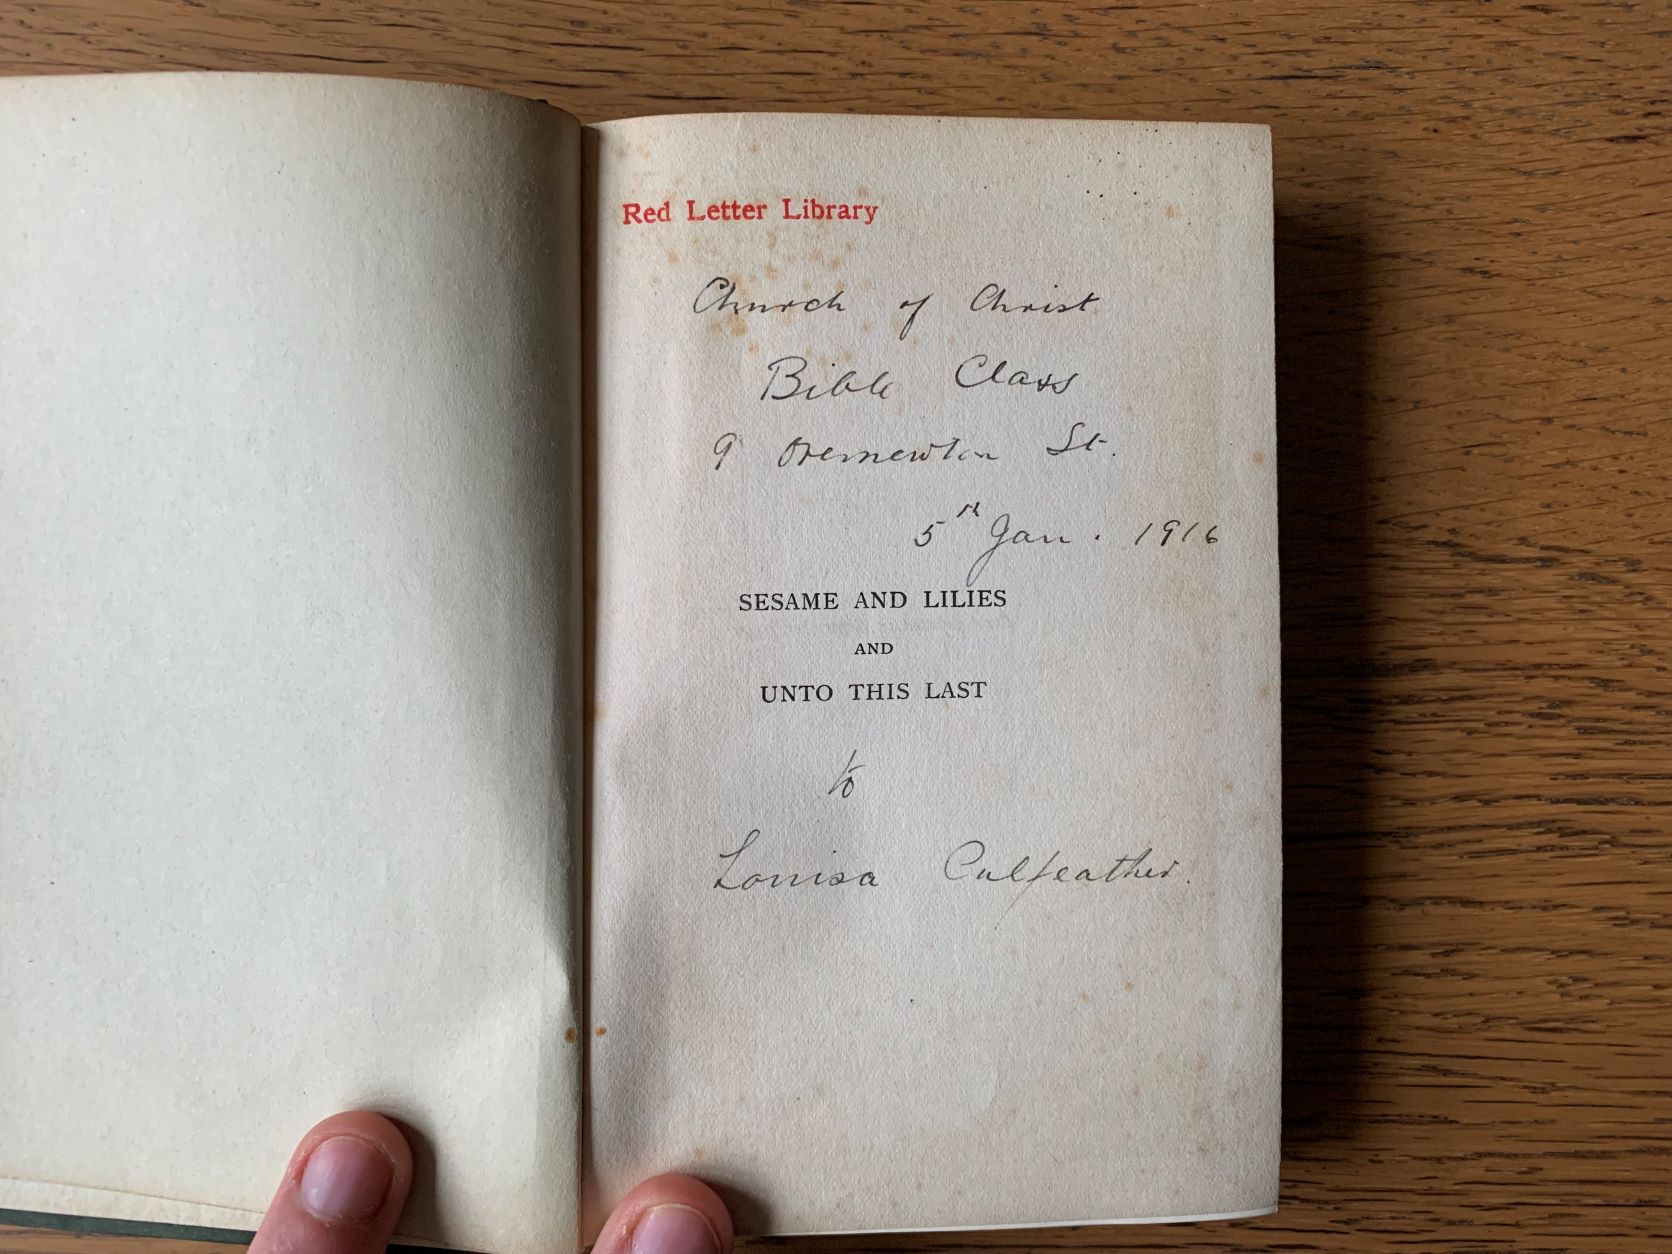 Red Letter Library
Church of Christ
Bible Class
9 St.
5th Jan. 1916
SESAME AND LILIES
AND
UNTO THIS LAST
to
Louisa Culfeather.